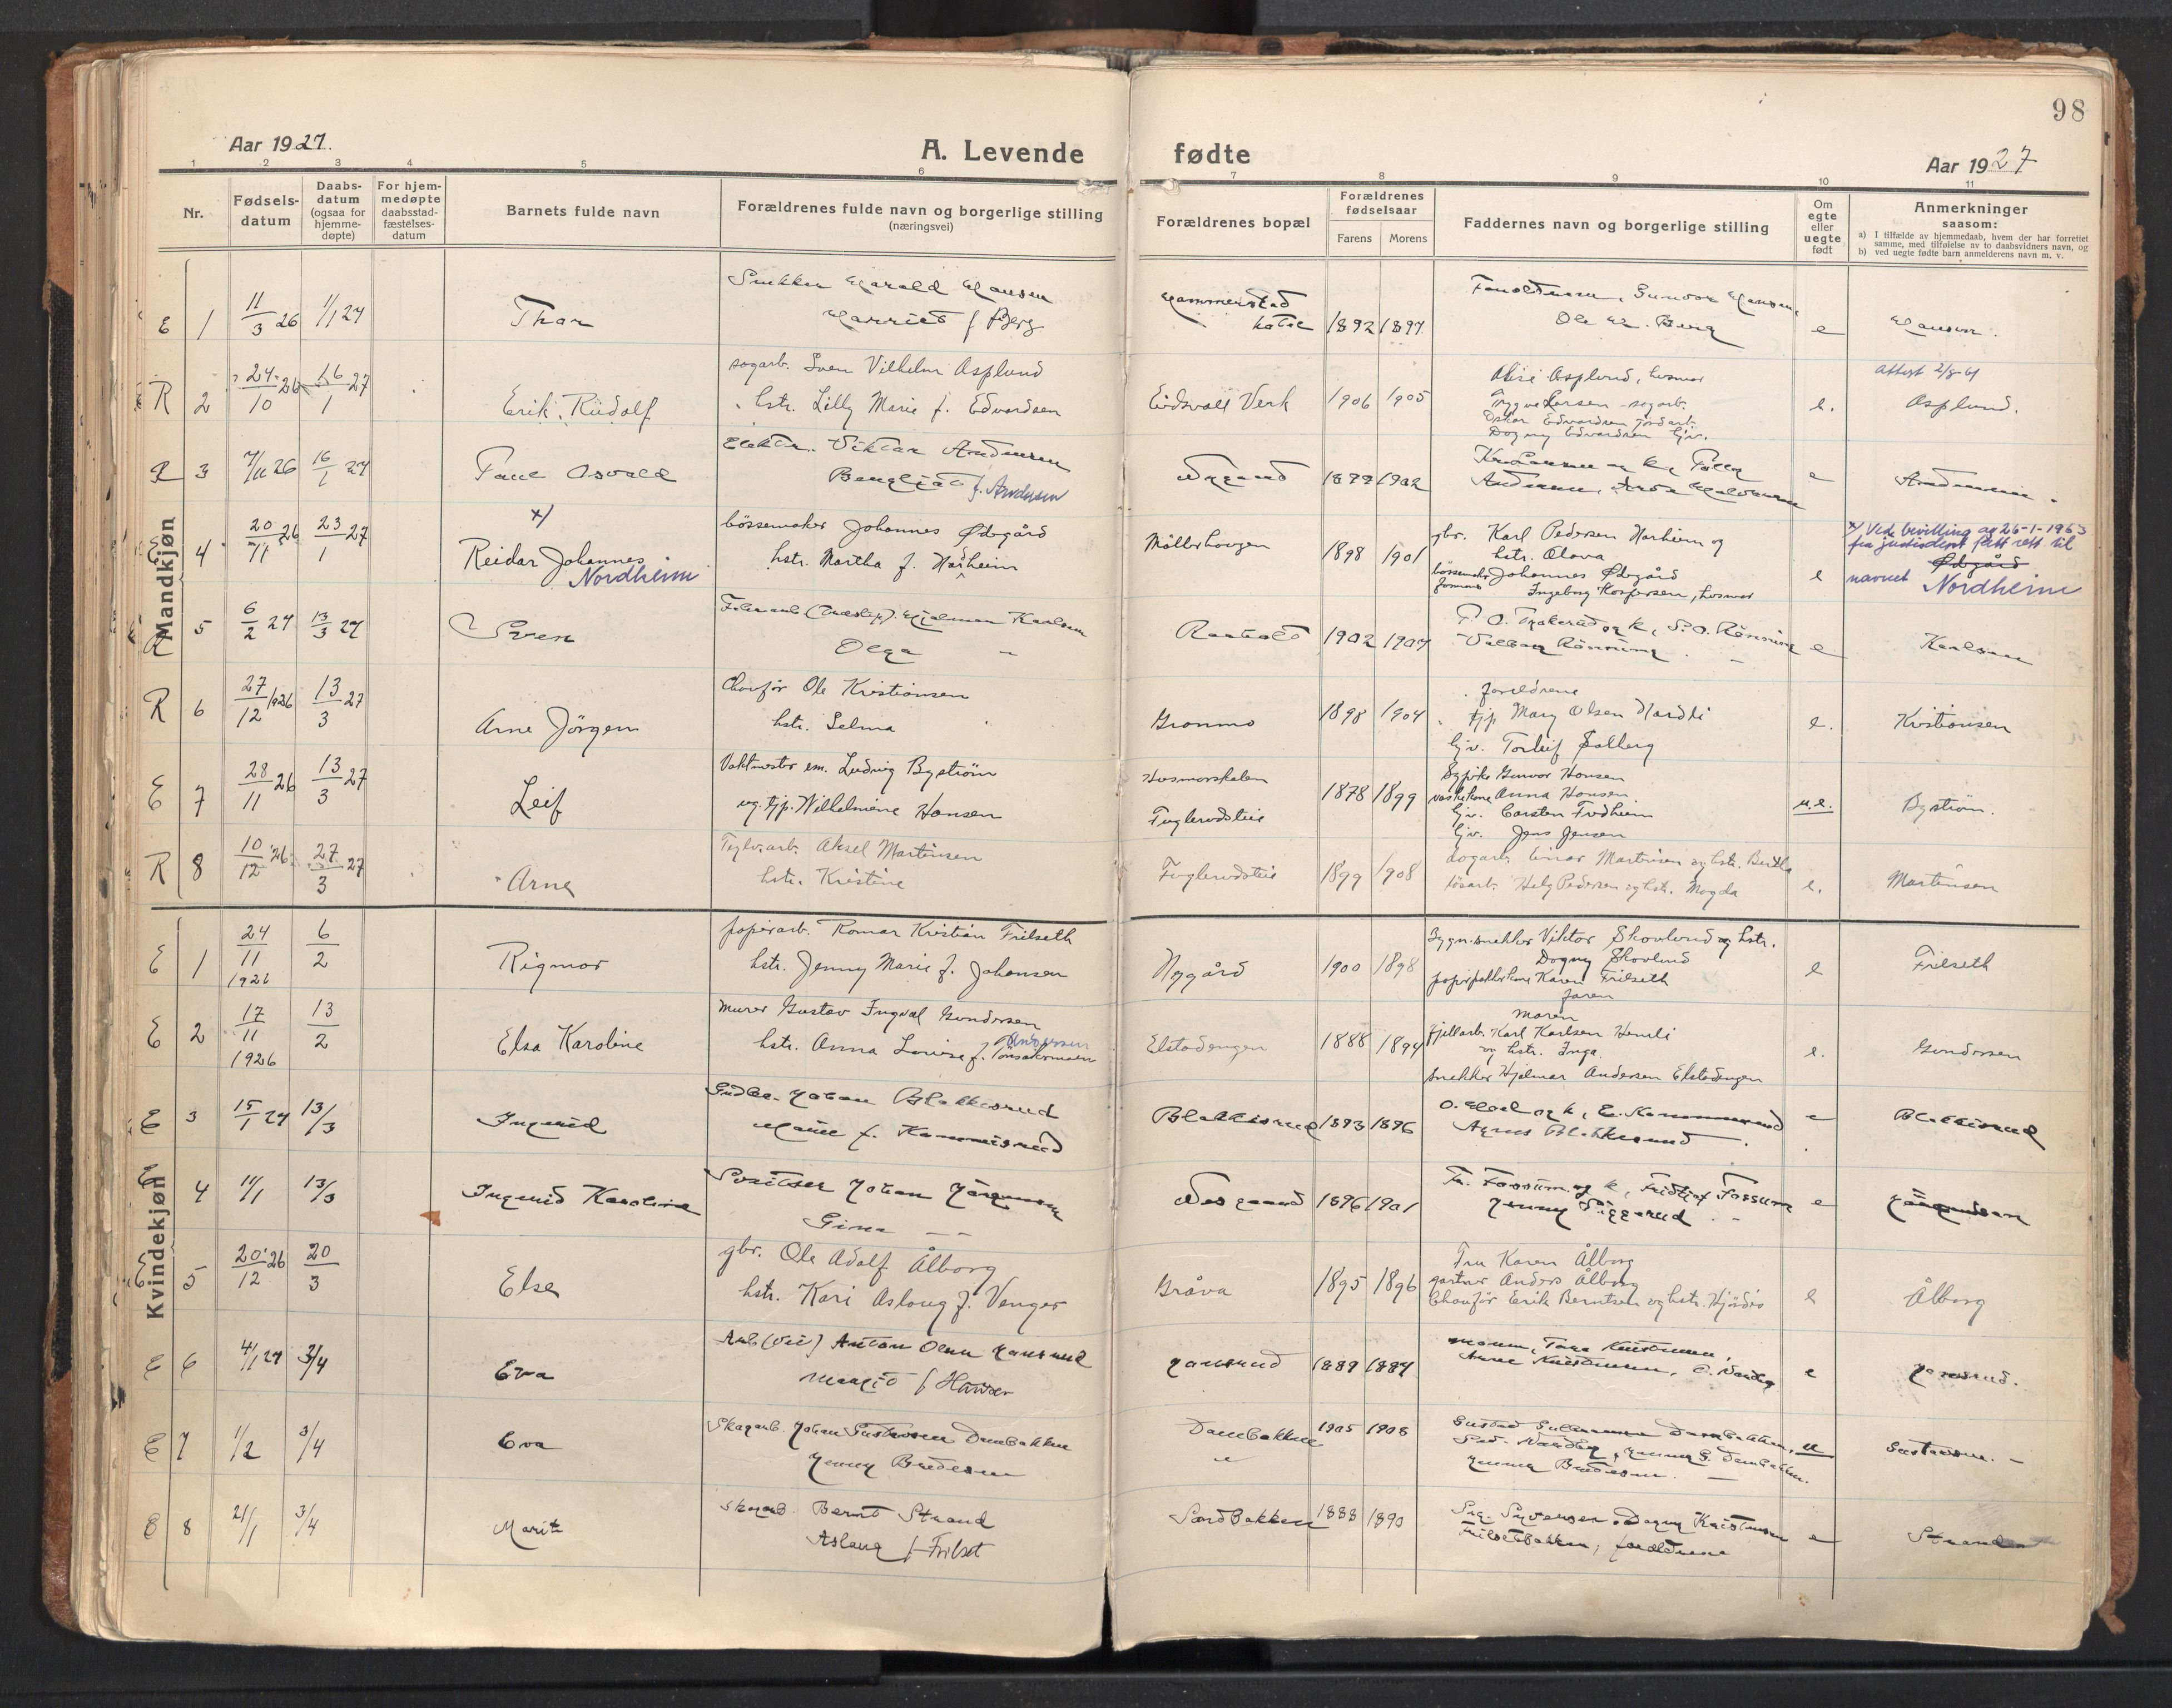 98
Aar 1927.
A. Levende fødte
Aar 1927
1 2 3 4 5 6 7 8 9 10 11
Nr.
Fødsels-datum
Daabs-datum (ogsaa for hjemme-døpte)
For hjem-medøpte daabsstad-fæstelses-datum
Barnets fulde navn
Forældrenes fulde navn og borgerlige stilling (næringsvei)
Forældrenes bopæl
Forældrenes fødselsaar
Farens Morens
Faddernes navn og borgerlige stilling
Om egte eller uegte født
Anmerkninger saasom:
a) I tilfælde av hjemmedaab, hvem der har forrettet samme, med tilføielse av to daabsvidners navn, og
b) ved uegte fødte barn anmelderens navn m. v.
Mandkjøn
E 1 11/3 26 1/1 27 Thor
Snekker Harald Hansen
Harried f Berg
Hammerstad 1892 1897
Gunvor Hansen,
Ole H. Berg
e Hansen.
R 2 24/10 26 16/1 27 Erik Rudolf
sagarb. Sven Vilhelm Asplund
hstr. Lilly Marie f. Edvardsen
Eidsvoll Verk 1906 1905
Asplund, husmor
Trygve Larsen sagarb.
Oskar Edvardsen jordarb.
Dagny Edvardsen hjv.
e. Attest 2/8-61
Asplund.
R 3 7/11 26 16/1 27 Paul Osvald
Elektr. Viktor Andersen
Bergljot f. Andersen
1902
e Andersen.
E 4 20/11 26 23/1 27 x/ Reidar Johannes Nordheim
bössemaker Johannes Ødegård
hstr. Martha f. Nordheim
Möllerhaugen 1898 1901
gbr. Karl Pedersen Norheim og
hstr. Olava
bössemaker Johannes Ødegård
Ingeborg Kaspersen, husmor
e x/ Ved bevilling av 26-1-1965
fra justisdept fått rett til
navnet Ødegård Nordheim
R 5 6/2 27 13/3 27 Sven
Hjalmar Karlsen
Olga —
Raaholt 1902 1907
e Karlsen
R 6 27/12 1926 13/3 27 Arne Jörgen
Chauffør Ole Kristiansen
hstr. Selma
Grønmo 1898 1904
foreldrene
tjp Mary Olsen Nordli
hjv. Torleif Solberg
e. Kristiansen
E 7 28/11 26 13/3 27 Leif
Vaktmester em. Ludvig Byström
ug. tjp. Wilhelmine Hansen
Husmorskolen
Fuglerudsteie 1878 1899
Sypike Gunvor Hansen
vaskekone Anna Hansen
hjv. Carsten Fredheim
hjv. Jens Jensen
u.e. Byström.
R 8 10/12 26 27/3 27 Arne
Teglv.arb. Aksel Martinsen
hstr. Kristine
Fuglerudsteie 1899 1908
sagarb. Einar Martinsen og hstr. Bertha
løsarb. Helg Pedersen og hstr. Magda
e. Martinsen
Kvindekjøn
E 1 24/11 1926 6/2 Rigmor
papirarb. Romar Kristian Frilseth
hstr. Jenny Marie f. Johansen
Nygård 1900 1898
Bygn.snekker Viktor Skovlund og hstr.
Dagny Skovlund
Karen Frilseth
faren
e Frilseth
E 2 17/11 1926 13/2 Elsa Karoline
murer Gustav Ingval Gundersen
hstr. Anna Lovise f. Andersen
Elstadengen 1888 1894
moren
fjellarb. Karl Karlsen Homli
og hstr. Inga.
snekker Hjalmar Andersen Elstadengen
e. Gundersen
E 3 15/1 27 13/3 Ingrid
Gudbr. Johan Blakkisrud
Marie f. Kammisrud
Blakkisrud 1893 1896
Agnes Blakkisrud.
e Blakkisrud
E 4 11/1 13/3 Ingrid Karoline
Johan Jörgensen
Gina — —
1896 1901
Fr. Fossum og k, Fridtjof Fossum
Jenny
e Jörgensen
E 5 20/12 26 20/3 Else
gbr. Ole Adolf Ålborg
hstr. Kari Aslaug f. Venger
Gråva 1895 1896
Fru Karen Ålborg
gartner Anders Ålborg
Chauffør Erik Berntsen og hstr. Hjördis
e Ålborg
E 6 4/1 27 3/4 Eva
Arb. (vei) Anton Olsen Hansrud
Margit f Hansen
Hansrud 1889 1887
e Hansrud.
E 7 1/2 3/4 Eva
Skogarb. Johan Gustavsen Dambakken
Jenny Bredesen
Dambakken 1905 1908
Jenny Bredesen. —
u Gustavsen. —
E 8 21/1 3/4 Marit
Skogarb. Bernt Strand
Aslaug f. Frilset
Sandbakken 1888 1890
Dagny Kristensen
Frilsetbakken, forældrene
e Strand